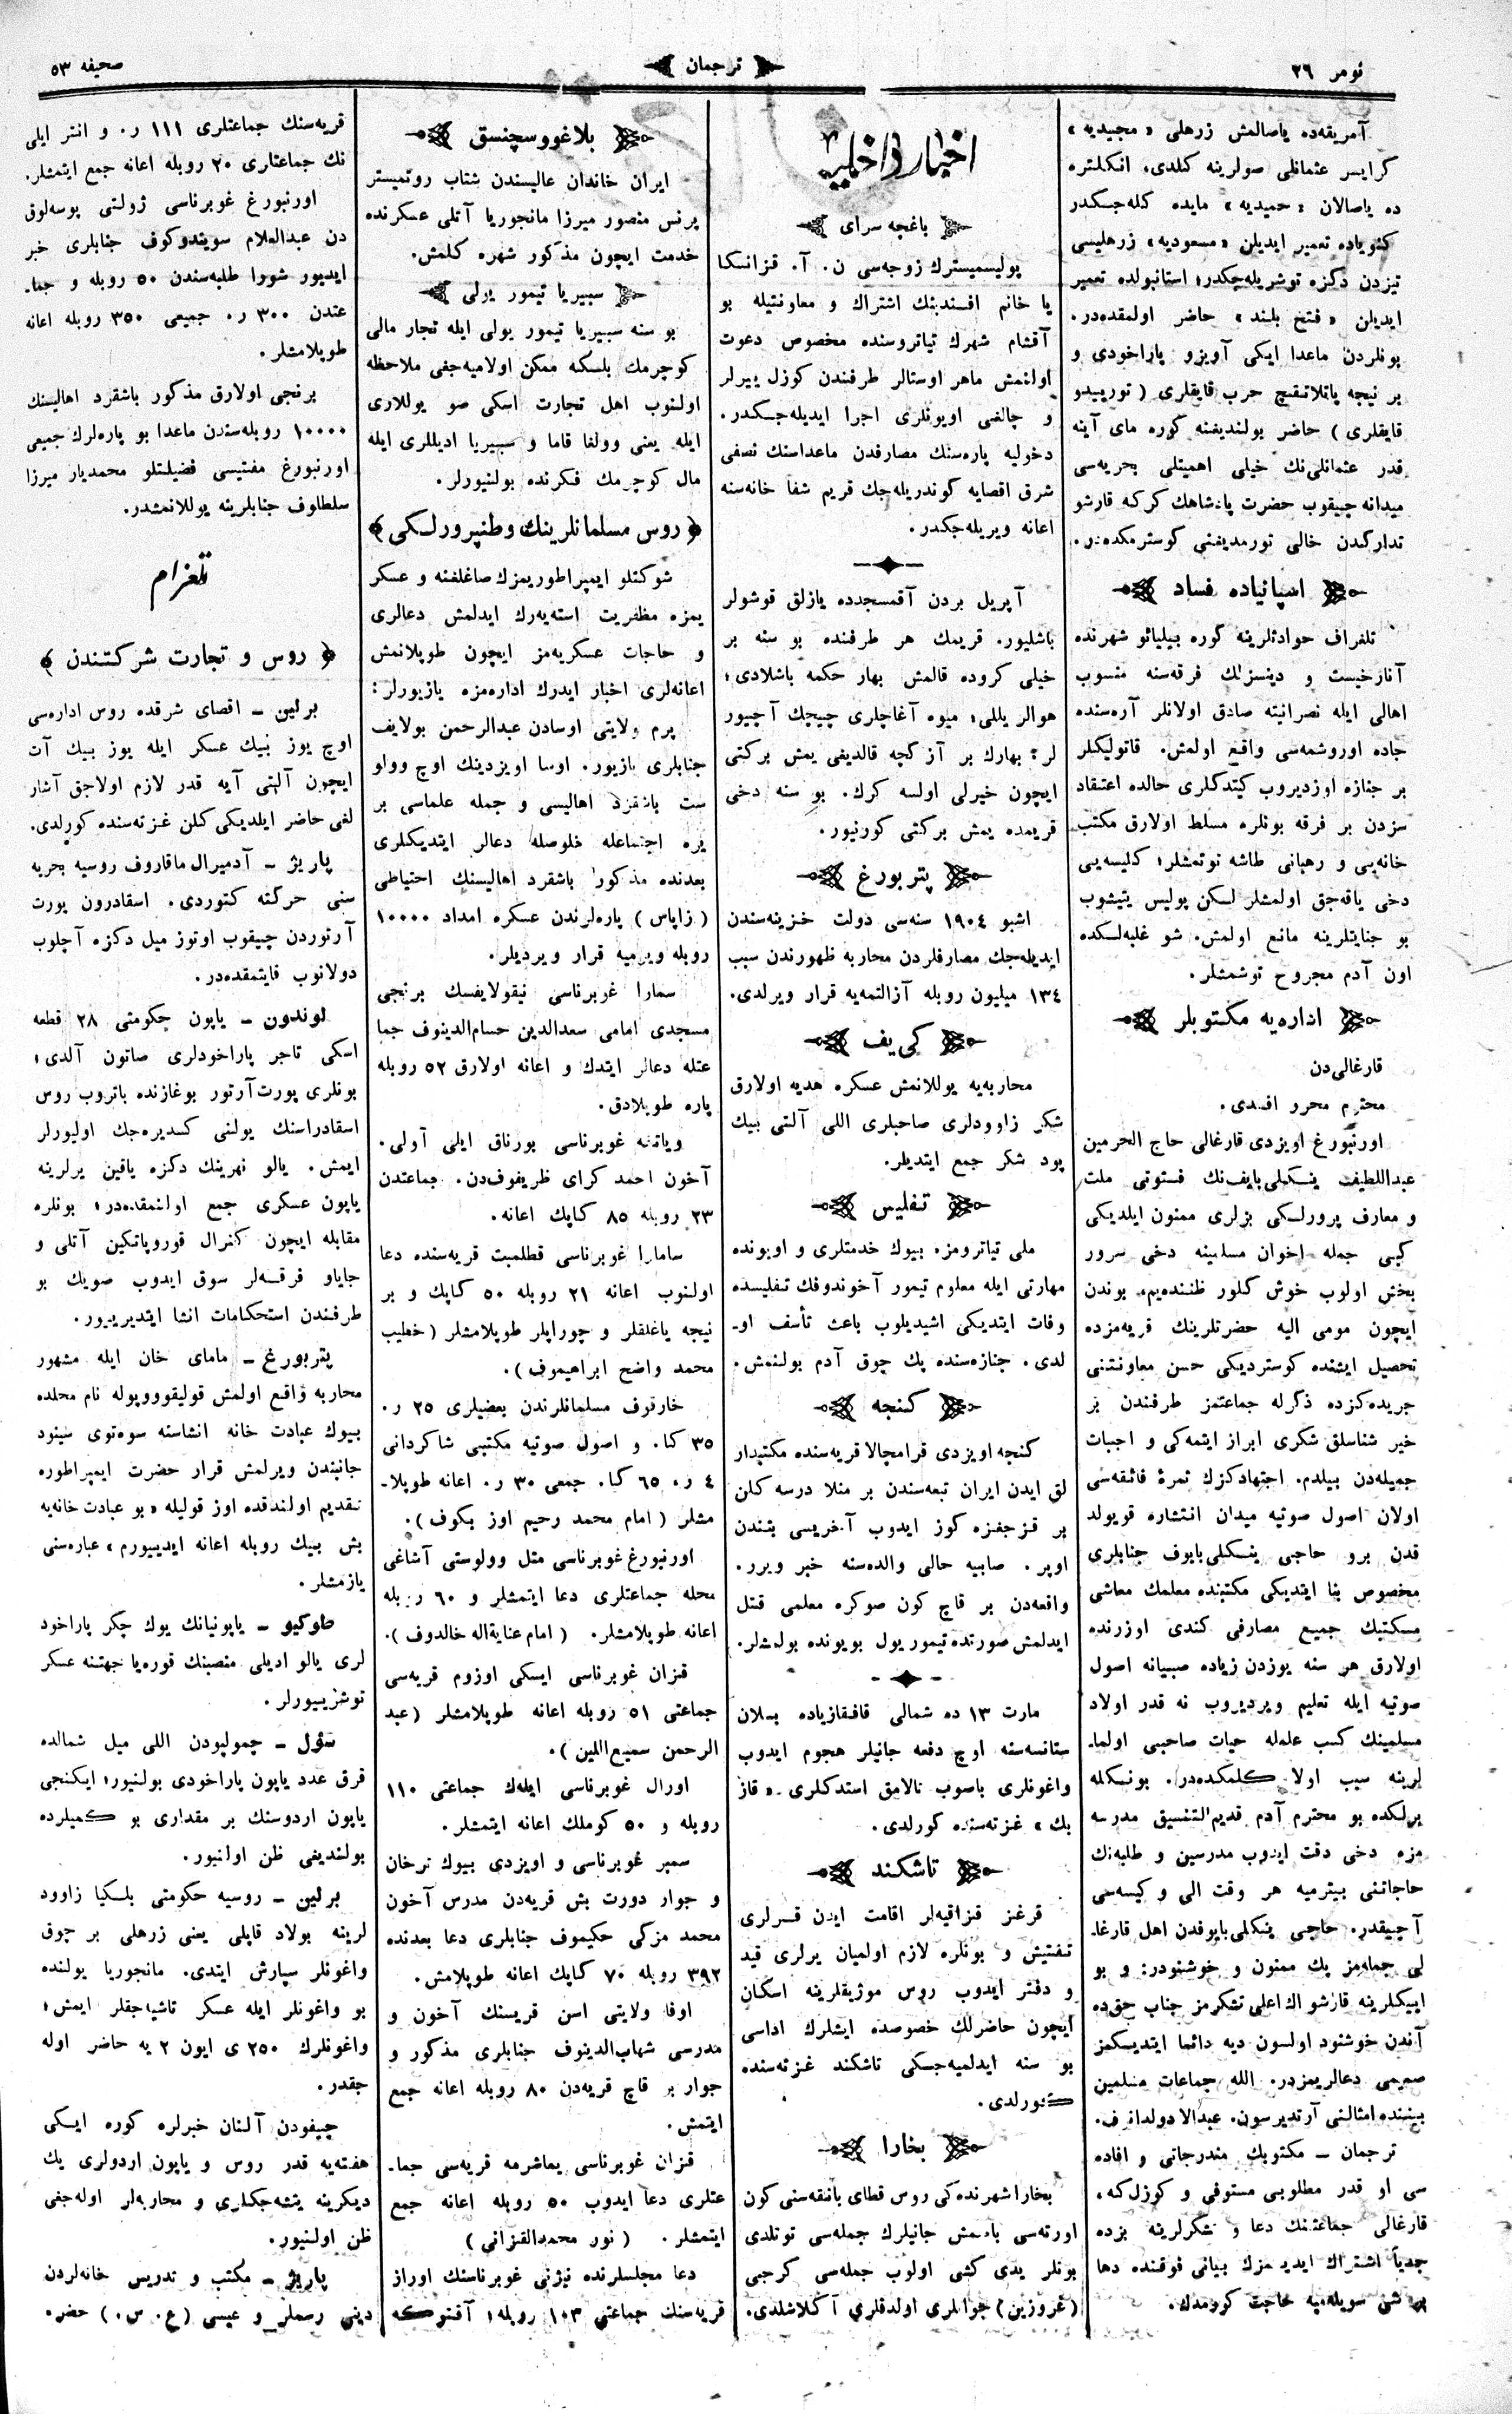 نومر ٢٩
ترجمان
صحیفه ٥٣
آمریقه‌ده یاصالمش زرهلی «مجیدیه»
کرایسر عثمانلی صولرینه کلدی، انکلتره
ده یاصالان «حمیدیه» مایده کله‌جکدر
تعمیر ایدیلن «مسعودیه» زرهلیسی
تیزدن دکزه توشریله‌جکدر؛ استانبولده تعمیر
ایدیلن «فتح بلند» حاضر اولمقده‌در.
بونلردن ماعدا ایکی آویزو پاراخودی و
بر نیچه پاتلاتقیچ حرب قایقلری (تورپیدو
قایقلری) حاضر بولندیغنه کوره مای آینه
قدر عثمانلی‌نك خیلی اهمیتلی بحریه‌سی
میدانه چیقوب حضرت پادشاهك کرکه قارشو
تدارکدن خالی تورمدیغنی کوسترمکده‌در.
اسپانیاده فساد
تلغراف حوادثلرینه کوره بیلبائو شهرنده
آنارخیست و دینسزلك فرقه‌سنه منسوب
اهالی ایله نصرانیته صادق اولانلر آره‌سنده
جاده اوروشمه‌سی واقع اولمش. قاتولیکلر
بر جنازه اوزدیروب کیتدکلری حالده اعتقاد
سزدن بر فرقه بونلره مسلط اولارق مکتب
خانه‌یی و رهبانی طاشه توتمشلر؛ کلیسه‌یی
دخی یاقه‌جق اولمشلر لکن پولیس یتیشوب
بو جنایتلرینه مانع اولمش. شو غلبه‌لکده
اون آدم مجروح توشمشلر.
اداره‌یه مکتوبلر
قارغالی‌دن
محترم محرر افندی.
اورنبورغ اویزدی قارغالی حاج الحرمین
عبداللطیف ینکلی‌بایف‌نك فتوتی ملت
و معارف پرورلکی بزلری ممنون ایلدیکی
کبی جمله اخوان مسلمینه دخی سرور
بخش اولوب خوش کلور ظننده‌یم. بوندن
ایچون مومی الیه حضرتلرینك قریه‌مزده
تحصیل ایشنده کوستردیکی حسن معاونتنی
جریده‌کزده ذکرله جماعتمز طرفندن بر
خیر شناسلق شکری ابراز ایتمه‌کی و اجبات
جمیله‌دن بیلدم. اجتهادکزك ثمرهٔ فائقه‌سی
اولان اصول صوتیه میدان انتشاره قویولد
قدن برو حاجی ینکلی‌بایوف جنابلری
مخصوص بنا ایتدیکی مکتبنده معلمك معاشی
مسکتبك جمیع مصارفی کندی اوزرنده
اولارق هر سنه یوزدن زیاده صبیانه اصول
صوتیه ایله تعلیم ویردیروب نه قدر اولاد
مسلمینك کسب علمله حیات صاحبی اولما-
لرینه سبب اولا کلمکده‌در. بونکله
برلکده بو محترم آدم قدیم‌التنسیق مدرسه
مزه دخی دقت ایدوب مدرسین و طلبه‌نك
حاجاتنی بیترمیه هر وقت الی و کیسه‌سی
آچیقدر. حاجی ینکلی‌بایوفدن اهل قارغا-
لی جمله‌مز پك ممنون و خوشنودر: و بو
ایپکلرینه قارشو اك اعلی تشکرمز جناب حق‌ده
آندن خوشنود اولسون دیه دائما ایتدیکمز
صمیمی دعالریمزدر. الله جماعات مسلمین
بیننده امثالنی آرتدیرسون. عبدالا دولدانف.
ترجمان – مکتوبك مندرجاتی و افاده
سی او قدر مطلوبی مستوفی و کوزل‌که،
قارغالی جماعتنك دعا و تشکرلرینه بزده
جدیاً اشتراك ایدیمزك بیانی فوقنده دها
بر شی سویله‌میه حاجت کرومدك.
اخبار داخلیه
باغچه سرای
پولیسمیسترك زوجه‌سی ن. آ. قزانسکا
یا خانم افندینك اشتراك و معاونتیله بو
آقشام شهرك تیاتروسنده مخصوص دعوت
اولنمش ماهر اوستالر طرفندن کوزل ییرلر
و چالغی اویونلری اجرا ایدیله‌جکدر.
دخولیه پاره‌سنك مصارفدن ماعداسنك نصفی
شرق اقصایه کوندریله‌جك قریم شفا خانه‌سنه
اعانه ویریله‌جکدر.
آپریل بردن آقمسجدده یازلق قوشولر
باشلیور. قریمك هر طرفنده بو سنه بر
خیلی کروده قالمش بهار حکمه باشلادی؛
هوالر یللی؛ میوه آغاچلری چیچك آچیور
لر؛ بهارك بر آز کچه قالدیغی یمش برکتی
ایچون خیرلی اولسه کرك. بو سنه دخی
قریمده یمش برکتی کورنیور.
پتربورغ
اشبو ١٩٠٤ سنه‌سی دولت خزینه‌سندن
ایدیله‌جك مصارفلردن محاربه ظهورندن سبب
١٣٤ میلیون روبله آزالتمه‌یه قرار ویرلدی.
کی‌یف
محاربه‌یه یوللانمش عسکره هدیه اولارق
شکر زاوودلری صاحبلری اللی آلتی بیك
پود شکر جمع ایتدیلر.
تفلیس
ملی تیاترومزه بیوك خدمتلری و اویونده
مهارتی ایله معلوم تیمور آخوندوفك تفلیسده
وفات ایتدیکی اشیدیلوب باعث تأسف او-
لدی. جنازه‌سنده پك چوق آدم بولنمش.
کنجه
کنجه اویزدی قرامچالا قریه‌سنده مکتبدار
لق ایدن ایران تبعه‌سندن بر منلا درسه کلن
بر قزجغزه کوز ایدوب آخریسی بتندن
اوپر. صابیه حالی والده‌سنه خبر ویرر.
واقعه‌دن بر قاچ کون صوکره معلمی قتل
ایدلمش صورتده تیمور یول بویونده بولمشلر.
مارت ١٣ ده شمالی قافقازیاده بسلان
ستانسه‌سنه اوچ دفعه جانیلر هجوم ایدوب
واغونلری باصوب تالامق استدکلری «قاز
بك» غزته‌سنده کورلدی.
تاشکند
قرغز قزاقیه‌لر اقامت ایدن قرلری
تفتیش و بونلره لازم اولمیان یرلری قید
و دفتر ایدوب روس موژیقلرینه اسکان
ایچون حاضرلك خصوصده ایشلرك اداسی
بو سنه ایدلمیه‌جکی تاشکند غزته‌سنده
کورلدی.
بخارا
بخارا شهرنده‌کی روس قطای بانقه‌سنی کون
اورته‌سی باصمش جانیلرك جمله‌سی توتلدی
بونلر یدی کشی اولوب جمله‌سی کرجی
(غروزین) جوانلری اولدقلری آکلاشلدی.
بلاغووسچنسق
ایران خاندان عالیسندن شتاب روتمیستر
پرنس منصور میرزا مانجوریا آتلی عسکرنده
خدمت ایچون مذکور شهره کلمش.
سبیریا تیمور یولی
بو سنه سبیریا تیمور یولی ایله تجار مالی
کوچرمك بلکه ممکن اولامیه‌جغی ملاحظه
اولنوب اهل تجارت اسکی صو یوللاری
ایله یعنی وولغا قاما و سبیریا ادیللری ایله
مال کوچرمك فکرنده بولنیورلر.
روس مسلمانلرینك وطنپرورلکی
شوکتلو ایمپراطوریمزك صاغلغنه و عسکر
یمزه مظفریت استه‌یه‌رك ایدلمش دعالری
و حاجات عسکریه‌مز ایچون طوپلانمش
اعانه‌لری اخبار ایدرك اداره‌مزه یازیورلر:
پرم ولایتی اوسادن عبدالرحمن بولایف
جنابلری یازیور. اوسا اویزدینك اوچ وولو
ست باشقرد اهالیسی و جمله علماسی بر
یره اجتماعله خلوصله دعالر ایتدیکلری
بعدنده مذکور باشقرد اهالیسنك احتیاطی
(زاپاس) پاره‌لرندن عسکره امداد ١٠٠٠٠
روبله ویرمیه قرار ویردیلر.
سمارا غوبرناسی نیقولایفسك برنجی
مسجدی امامی سعدالدین حسام‌الدینوف جما
عتله دعالر ایتدك و اعانه اولارق ٥٢ روبله
پاره طوپلادق.
ویاتقه غوبرناسی بورناق ایلی آولی.
آخون احمد کرای ظریفوف‌دن. جماعتدن
٢٣ روبله ٨٥ کاپك اعانه.
سامارا غوبرناسی قطلمبت قریه‌سنده دعا
اولنوب اعانه ٢١ روبله ٥٠ کاپك و بر
نیچه یاغلقلر و چوراپلر طوپلامشلر (خطیب
محمد واضح ابراهیموف).
خارقوف مسلمانلرندن بعضیلری ٢٥ ر.
٣٥ کا. و اصول صوتیه مکتبی شاکردانی
٤ ر. ٦٥ کا. جمعی ٣٠ ر. اعانه طوپلا-
مشلر (امام محمد رحیم اوز بکوف).
اورنبورغ غوبرناسی مثل وولوستی آشاغی
محله جماعتلری دعا ایتمشلر و ٦٠ روبله
اعانه طوپلامشلر. (امام عنایة‌اله خالدوف).
قزان غوبرناسی ایسکی اوزوم قریه‌سی
جماعتی ٥١ روبله اعانه طوپلامشلر (عبد
الرحمن سمیع‌اللین).
اورال غوبرناسی ایله‌ك جماعتی ١١٠
روبله و ٥٠ کوملك اعانه ایتمشلر.
سمبر غوبرناسی و اویزدی بیوك ترخان
و جوار دورت بش قریه‌دن مدرس آخون
محمد مزکی حکیموف جنابلری دعا بعدنده
٣٩٢ روبله ٧٠ کاپك اعانه طوپلامش.
اوفا ولایتی اسن قریسنك آخون و
مدرسی شهاب‌الدینوف جنابلری مذکور و
جوار بر قاچ قریه‌دن ٨٠ روبله اعانه جمع
ایتمش.
قزان غوبرناسی یماشرمه قریه‌سی جما-
عتلری دعا ایدوب ٥٠ روبله اعانه جمع
ایتمشلر. (نور محمدالقزانی)
دعا مجلسلرنده نیژنی غوبرناسنك اوراز
قریه‌سنك جماعتی ١٠٣ روبله؛
قریه‌سنك جماعتلری ١١١ ر. و انتر ایلی
نك جماعتاری ٢٠ روبله اعانه جمع ایتمشلر.
اورنبورغ غوبرناسی ژولتی پوسه‌لوق
دن عبدالعلام سویندوکوف جنابلری خبر
ایدیور شورا طلبه‌سندن ٥٠ روبله و جما-
عتدن ٣٠٠ ر. جمیعی ٣٥٠ روبله اعانه
طوپلامشلر.
برنجی اولارق مذکور باشقرد اهالیسنك
١٠٠٠٠ روبله‌سندن ماعدا بو پاره‌لرك جمیعی
اورنبورغ مفتیسی فضیلتلو محمدیار میرزا
سلطانوف جنابلرینه یوللانمشدر.
تلغرام
روس و تجارت شرکتندن
برلین – اقصای شرقده روس اداره‌سی
اوچ یوز بیك عسکر ایله یوز بیك آت
ایچون آلتی آیه قدر لازم اولاجق آشار
لغی حاضر ایلدیکی کلن غزته‌سنده کورلدی.
پاریژ – آدمیرال ماقاروف روسیه بحریه
سنی حرکته کتوردی. اسقادرون پورت
آرتوردن چیقوب اوتوز میل دکزه آچلوب
دولانوب قایتمقده‌در.
لوندون – یاپون حکومتی ٢٨ قطعه
اسکی تاجر پاراخودلری صاتون آلدی؛
بونلری پورت‌آرتور بوغازنده باتروب روس
اسقادراسنك یولنی کسدیره‌جك اولیورلر
ایمش. یالو نهرینك دکزه یاقین یرلرینه
یاپون عسکری جمع اولنمقده‌در؛ بونلره
مقابله ایچون کنرال قوروپاتکین آتلی و
جایاو فرقه‌لر سوق ایدوب صوینك بو
طرفندن استحکامات انشا ایتدیریور.
پتربورغ – مامای خان ایله مشهور
محاربه واقع اولمش قولیقووپوله نام محلده
بیوك عبادت خانه انشاسنه سوه‌توی سینود
جانبندن ویرلمش قرار حضرت ایمپراطوره
تقدیم اولندقده اوز قولیله «بو عبادت خانه‌یه
بش بیك روبله اعانه ایدییورم» عباره‌سنی
یازمشلر.
طوکیو – یاپونیانك یوك چکر پاراخود
لری یالو ادیلی منصبنك قوره‌یا جهتنه عسکر
توشرییورلر.
سؤل – چمولپودن اللی میل شمالده
قرق عدد یاپون پاراخودی بولنیور؛ ایکنجی
یاپون اردوسنك بر مقداری بو کمیلرده
بولندیغی ظن اولنیور.
برلین – روسیه حکومتی بلکیا زاوود
لرینه بولاد قاپلی یعنی زرهلی بر چوق
واغونلر سپارش ایتدی. مانجوریا یولنده
بو واغونلر ایله عسکر تاشیاجقلر ایمش؛
واغونلرك ٢٥٠ ی ایون ٢ یه حاضر اوله
جقدر.
چیفودن آلنان خبرلره کوره ایکی
هفته‌یه قدر روس و یاپون اردولری یك
دیکرینه یتشه‌جکلری و محاربه‌لر اوله‌جغی
ظن اولنیور.
پاریژ – مکتب و تدریس خانه‌لردن
دینی رسملر و عیسی (ع. س.) حضر.